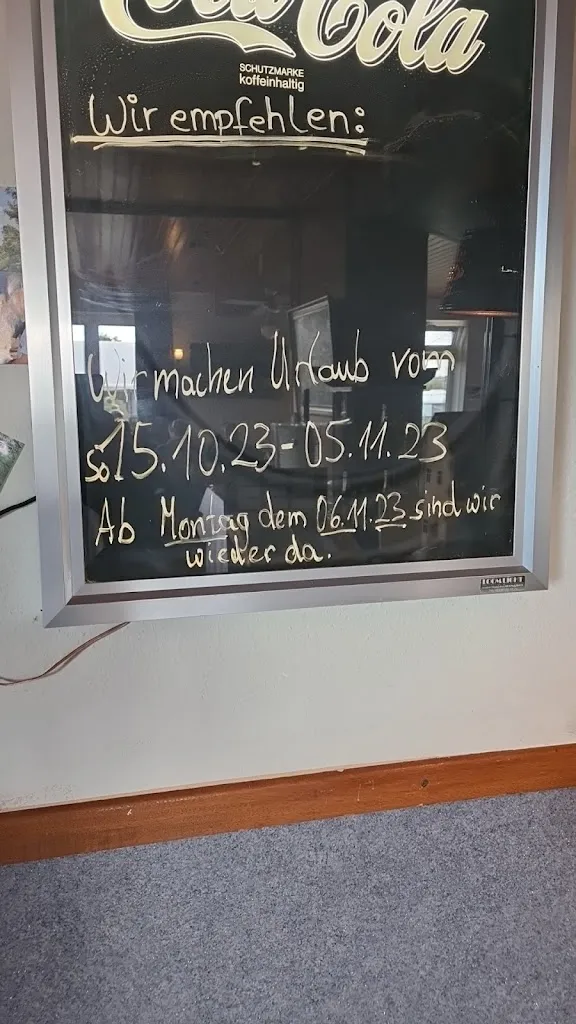 Coca Cola
SCHUTZMARKE
koffeinhaltig
Wir empfehlen:
Wir machen Urlaub vom
So 15.10.23-05.11.23
Ab Montag dem 06.11.23 sind wir
wieder da.